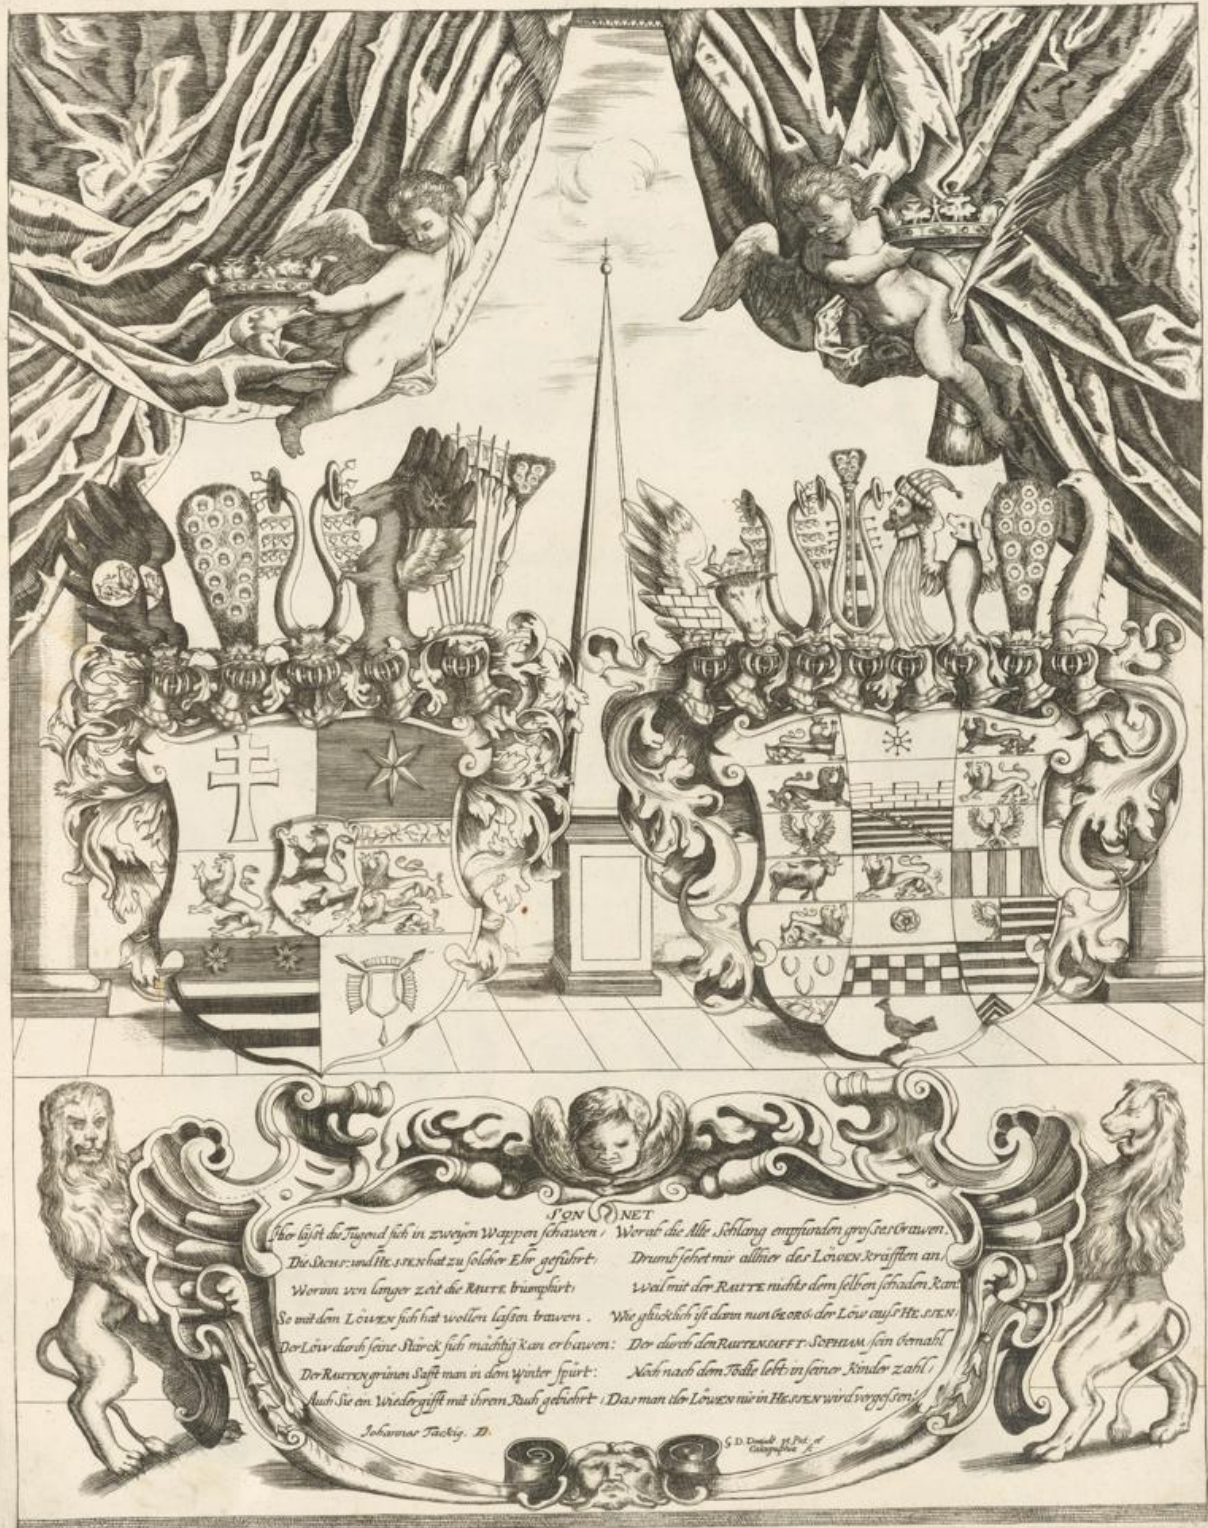 SONNET
Hier läſst die Tugend ſich in zweÿen Wappen ſchawen,
Die SACHS: und HESSEN hat zu ſolcher Ehr geführt:
Worinn von langer zeit die RAUTE triumphirt,
So mit dem LÖWEN ſich hat wollen laſsen trawen.
Der Löw durch ſeine Starck ſich mächtig kan erbawen:
Der RAUTEN grünen Safft man in dem Winter ſpürt:
Auch Sie ein Wiedergifft mit ihrem Ruch gebiehrt,
Worab die Alte Schlang empfunden groſses Grawen.
Drumb ſehet mir allhier des LÖWEN kräfften an,
Weil mit der RAUTE nichts dem ſelben ſchaden kan.
Wie glücklich iſt dann nun GEORG der Löw auſs HESSEN,
Der durch den RAUTENSAFFT, SOPHIAM, ſein Gemahl
Noch nach dem Todte lebt, in ſeiner Kinder zahl,
Das man der LÖWEN nie in HESSEN wird vergeſsen.
Johannes Tackig. D.